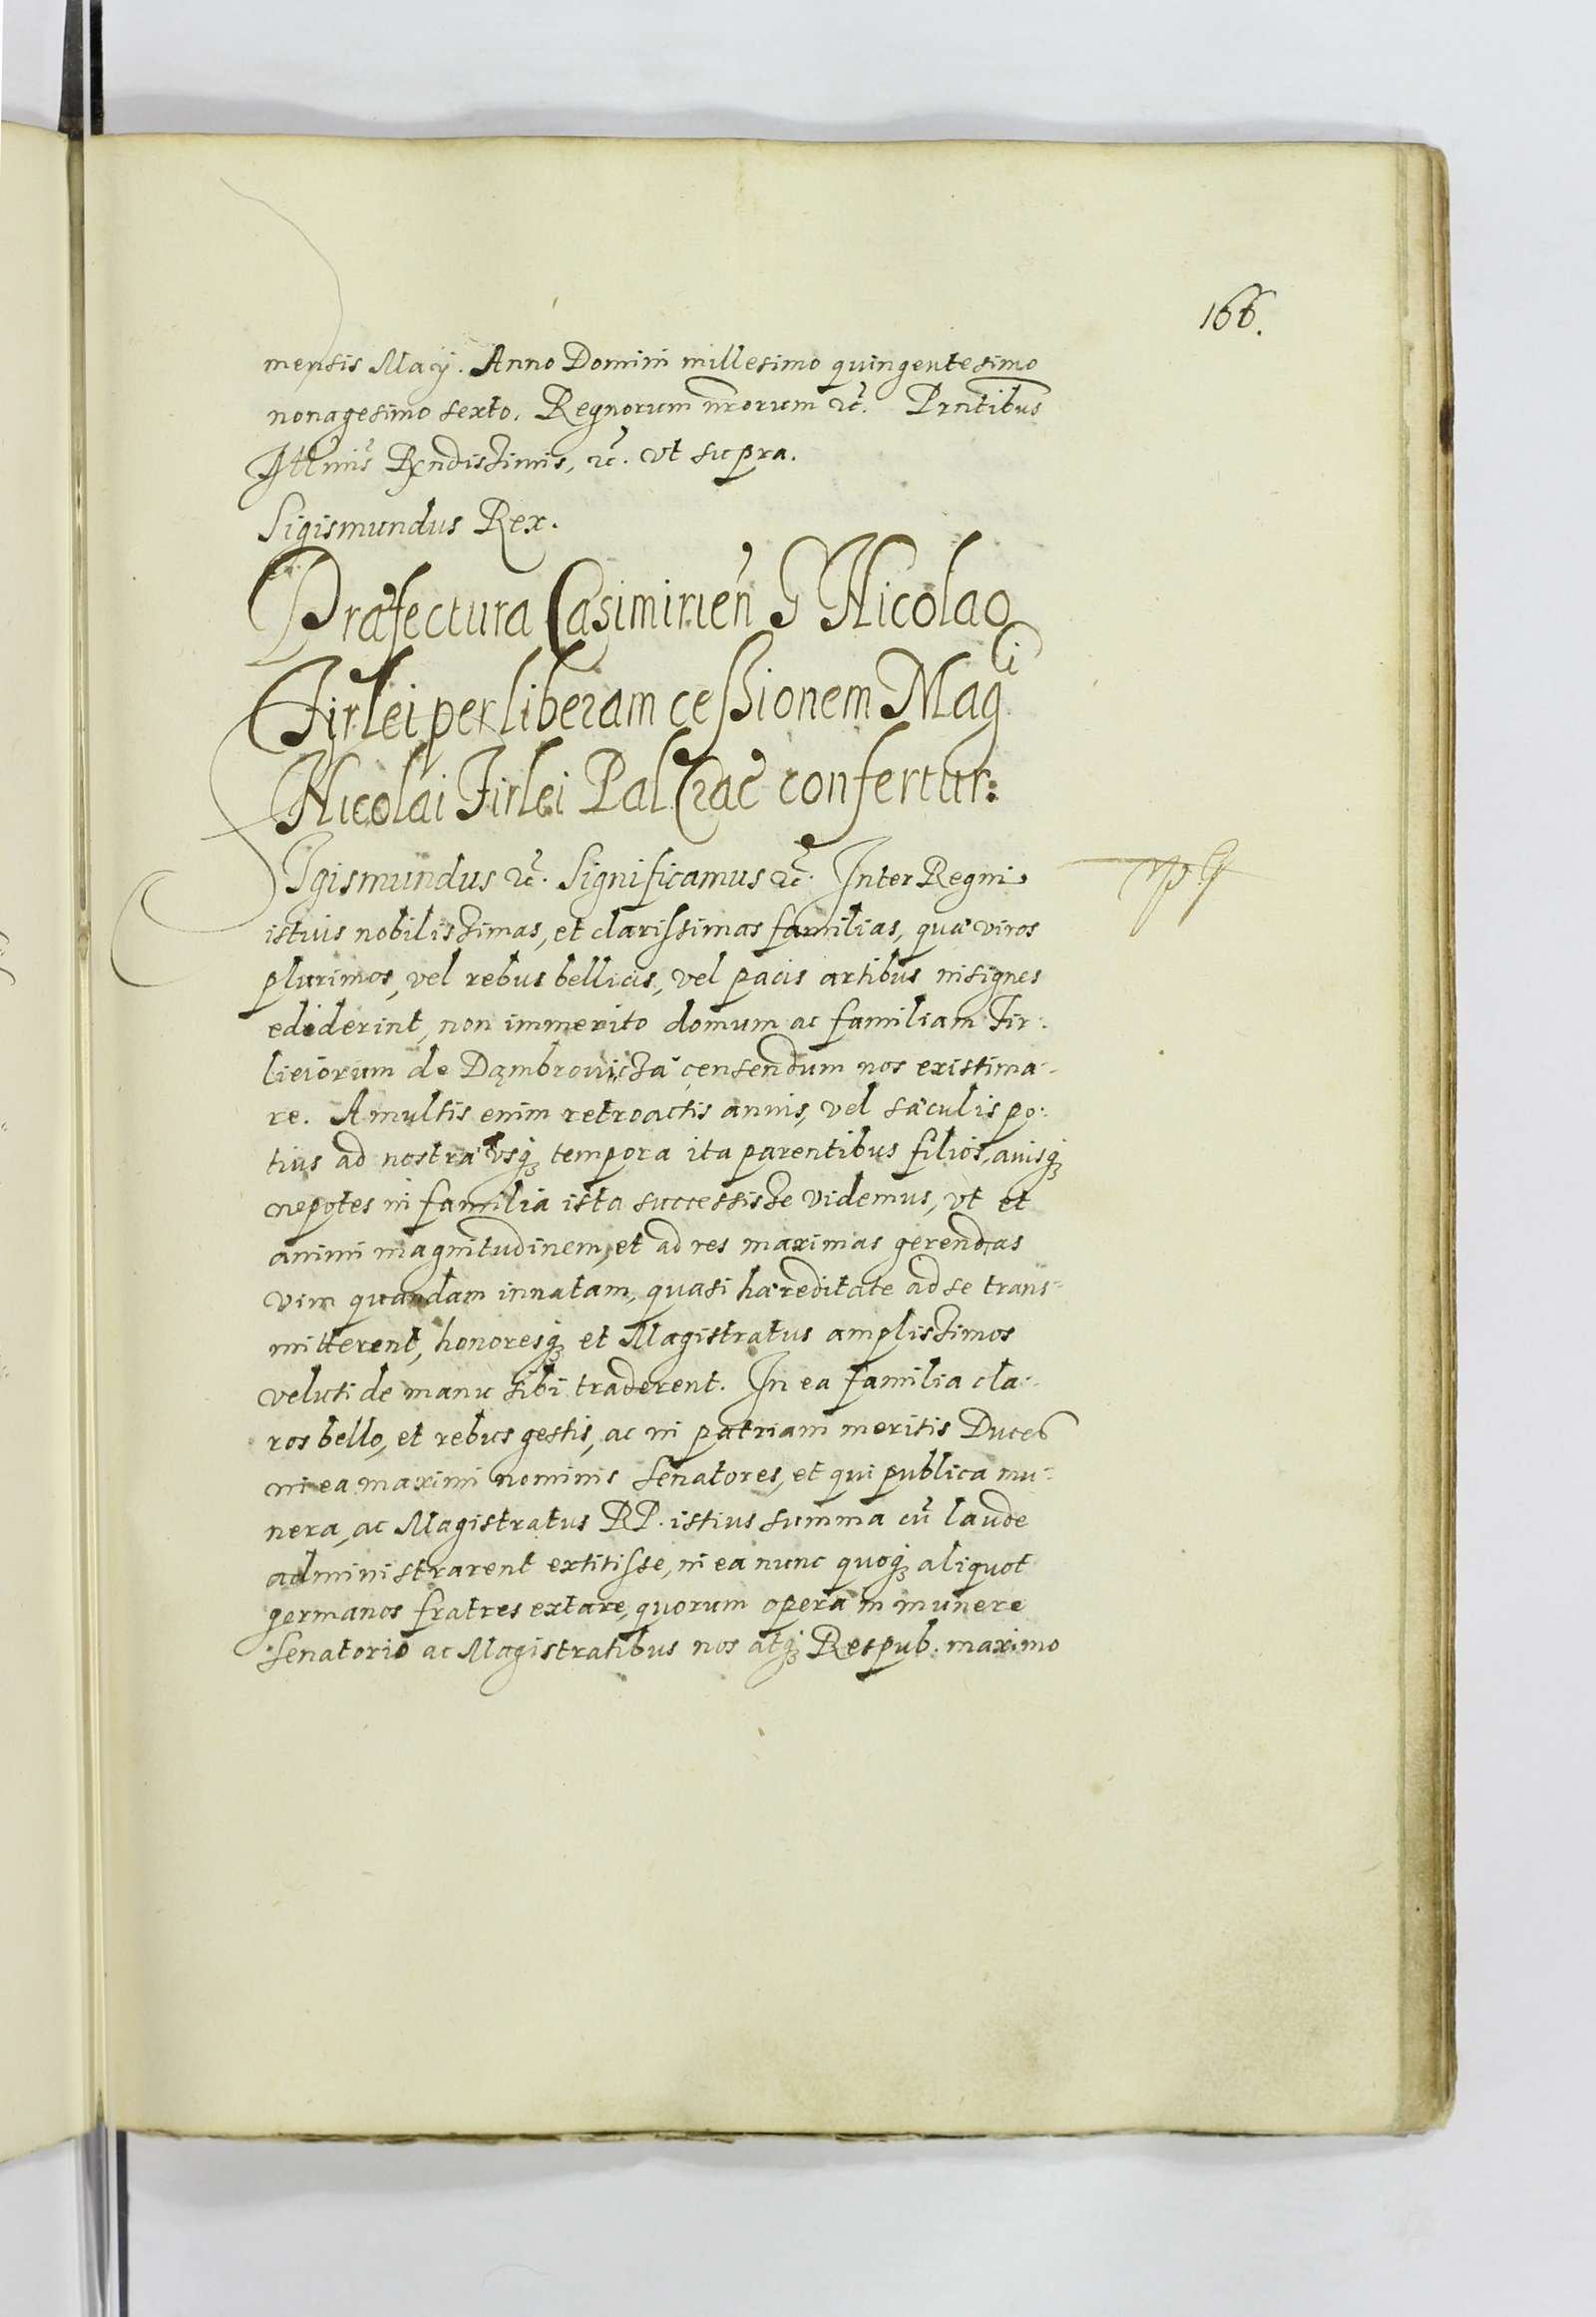 166.
mensis Maij. Anno Domini millesimo quingentesimo
nonagesimo sexto. Regnorum nrorum etc. Prntibus
Illmis Rndissimis, etc. vt supra.
Sigismundus Rex.
Præfectura Casimirien G Nicolao
Firlei per liberam cessionem Magci
Nicolai Firlei Pal Crac confertur.
Sigismundus etc. Significamus etc. Inter Regni
istius nobilissimas, et clarissimas familias, quæ viros
plurimos, vel rebus bellicis, vel pacis artibus insignes
ediderint, non immerito domum ac familiam Fir:
lieiorum de Dąmbrowicza censendum nos existima-
re. A multis enim retroactis annis, vel sæculis po:
tius ad nostra vsq tempora ita parentibus filios, auisq
nepotes in familia ista successisse videmus, vt et
animi magnitudinem, et ad res maximas gerendas
vim quandam innatam, quasi hæreditate ad se trans-
mitterent, honoresq et Magistratus amplissimos
veluti de manu sibi traderent. In ea familia cla:
ros bello, et rebus gestis, ac in patriam meritis Duces
in ea maximi nominis senatores, et qui publica mu:
nera, ac Magistratus RP. istius summa cū laude
administrarent extitisse, in ea nunc quoq aliquot
germanos fratres extare, quorum opera in munere
senatorio ac Magistratibus nos atq Respub. maximo